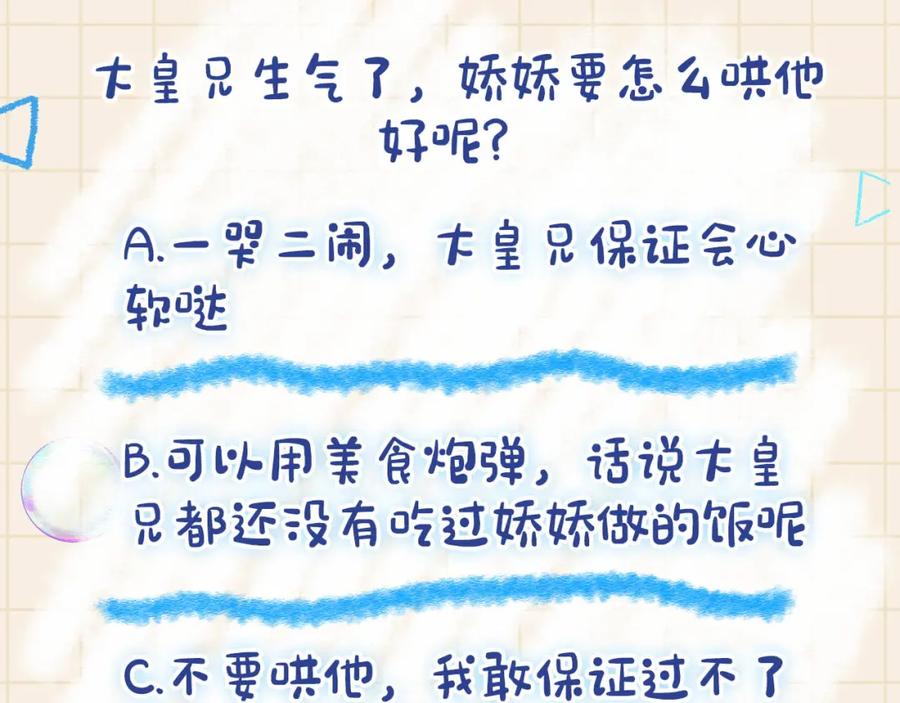 大皇兄生气了，娇娇要怎么哄他
好呢？
A.一哭二闹，大皇兄保证会心
软哒
B.可以用美食炮弹，话说大皇
兄都还没有吃过娇娇做的饭呢
C.不要哄他，我敢保证过不了